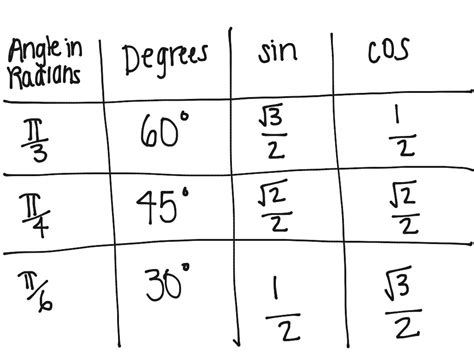 Angle in Radians Degrees sin cos
π/3 60° √3/2 1/2
π/4 45° √2/2 √2/2
π/6 30° 1/2 √3/2